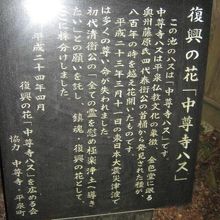 復興の花「中尊寺ハス」
この池のハスは「中尊寺ハス」です。
中尊寺ハスは平泉仏教文化の象徴、金色堂に眠る
奥州藤原氏四代泰衡公の首桶から発見された種が、
八百年の時を越え花開いたものです。
平成二十三年三月十一日の東日本大震災津波で
は多くの尊い命が失われました。
初代清衡公の「全ての霊を慰め極楽浄土へ導き
たい」との願いを託し、鎮魂、復興の花として、
ここに株分けしました。
平成二十四年四月
復興の花「中尊寺ハス」を広める会
協力 中尊寺・平泉町